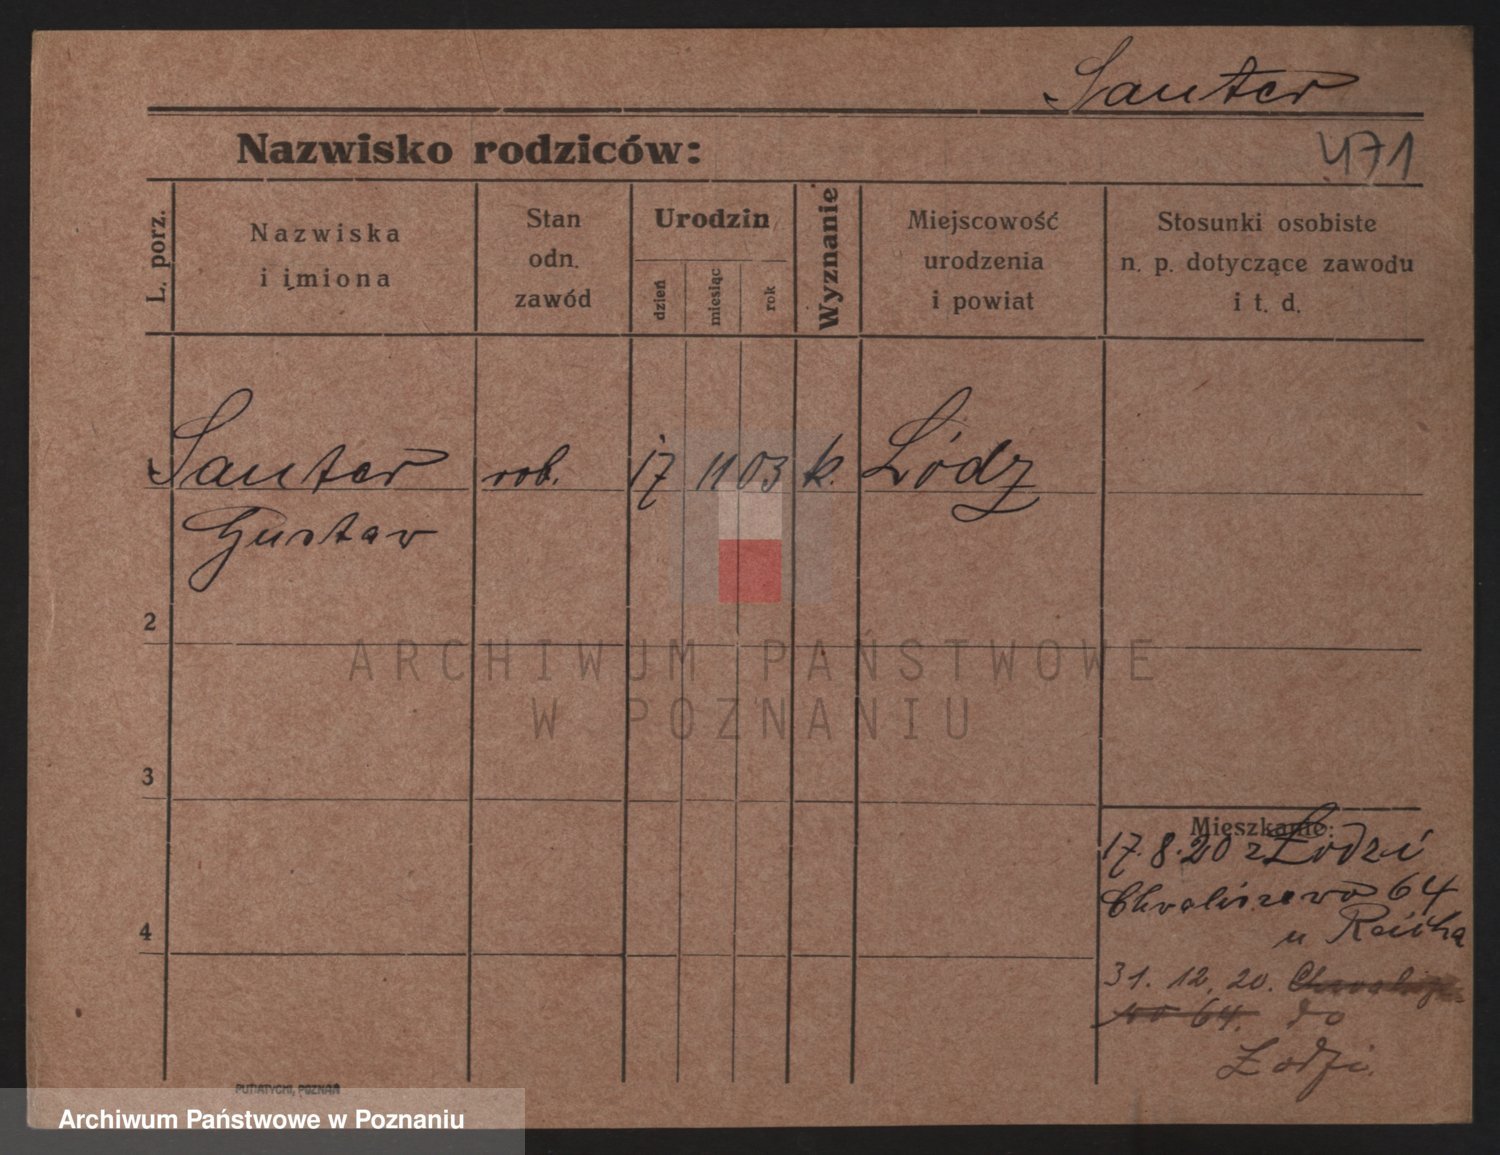 Sauter
Nazwisko rodziców:
471
L. porz.
Nazwiska
i imiona
Stan
odn.
zawód
Urodzin
dzień
miesiąc
rok
Wyznanie
Miejscowość
urodzenia
i powiat
Stosunki osobiste
n. p. dotyczące zawodu
i t. d.
Sauter rob. 17 11 03 k. Łódz
Gustav
2
3
4
Mieszkanie:
17. 8. 20 z Łodzi
Chwaliszewo 64
u
31. 12. 20. Chwalisze
wo 64. do
Łodzi.
PUTIATYCKI, POZNAŃ
ARCHIWUM PAŃSTWOWE
W POZNANIU
Archiwum Państwowe w Poznaniu